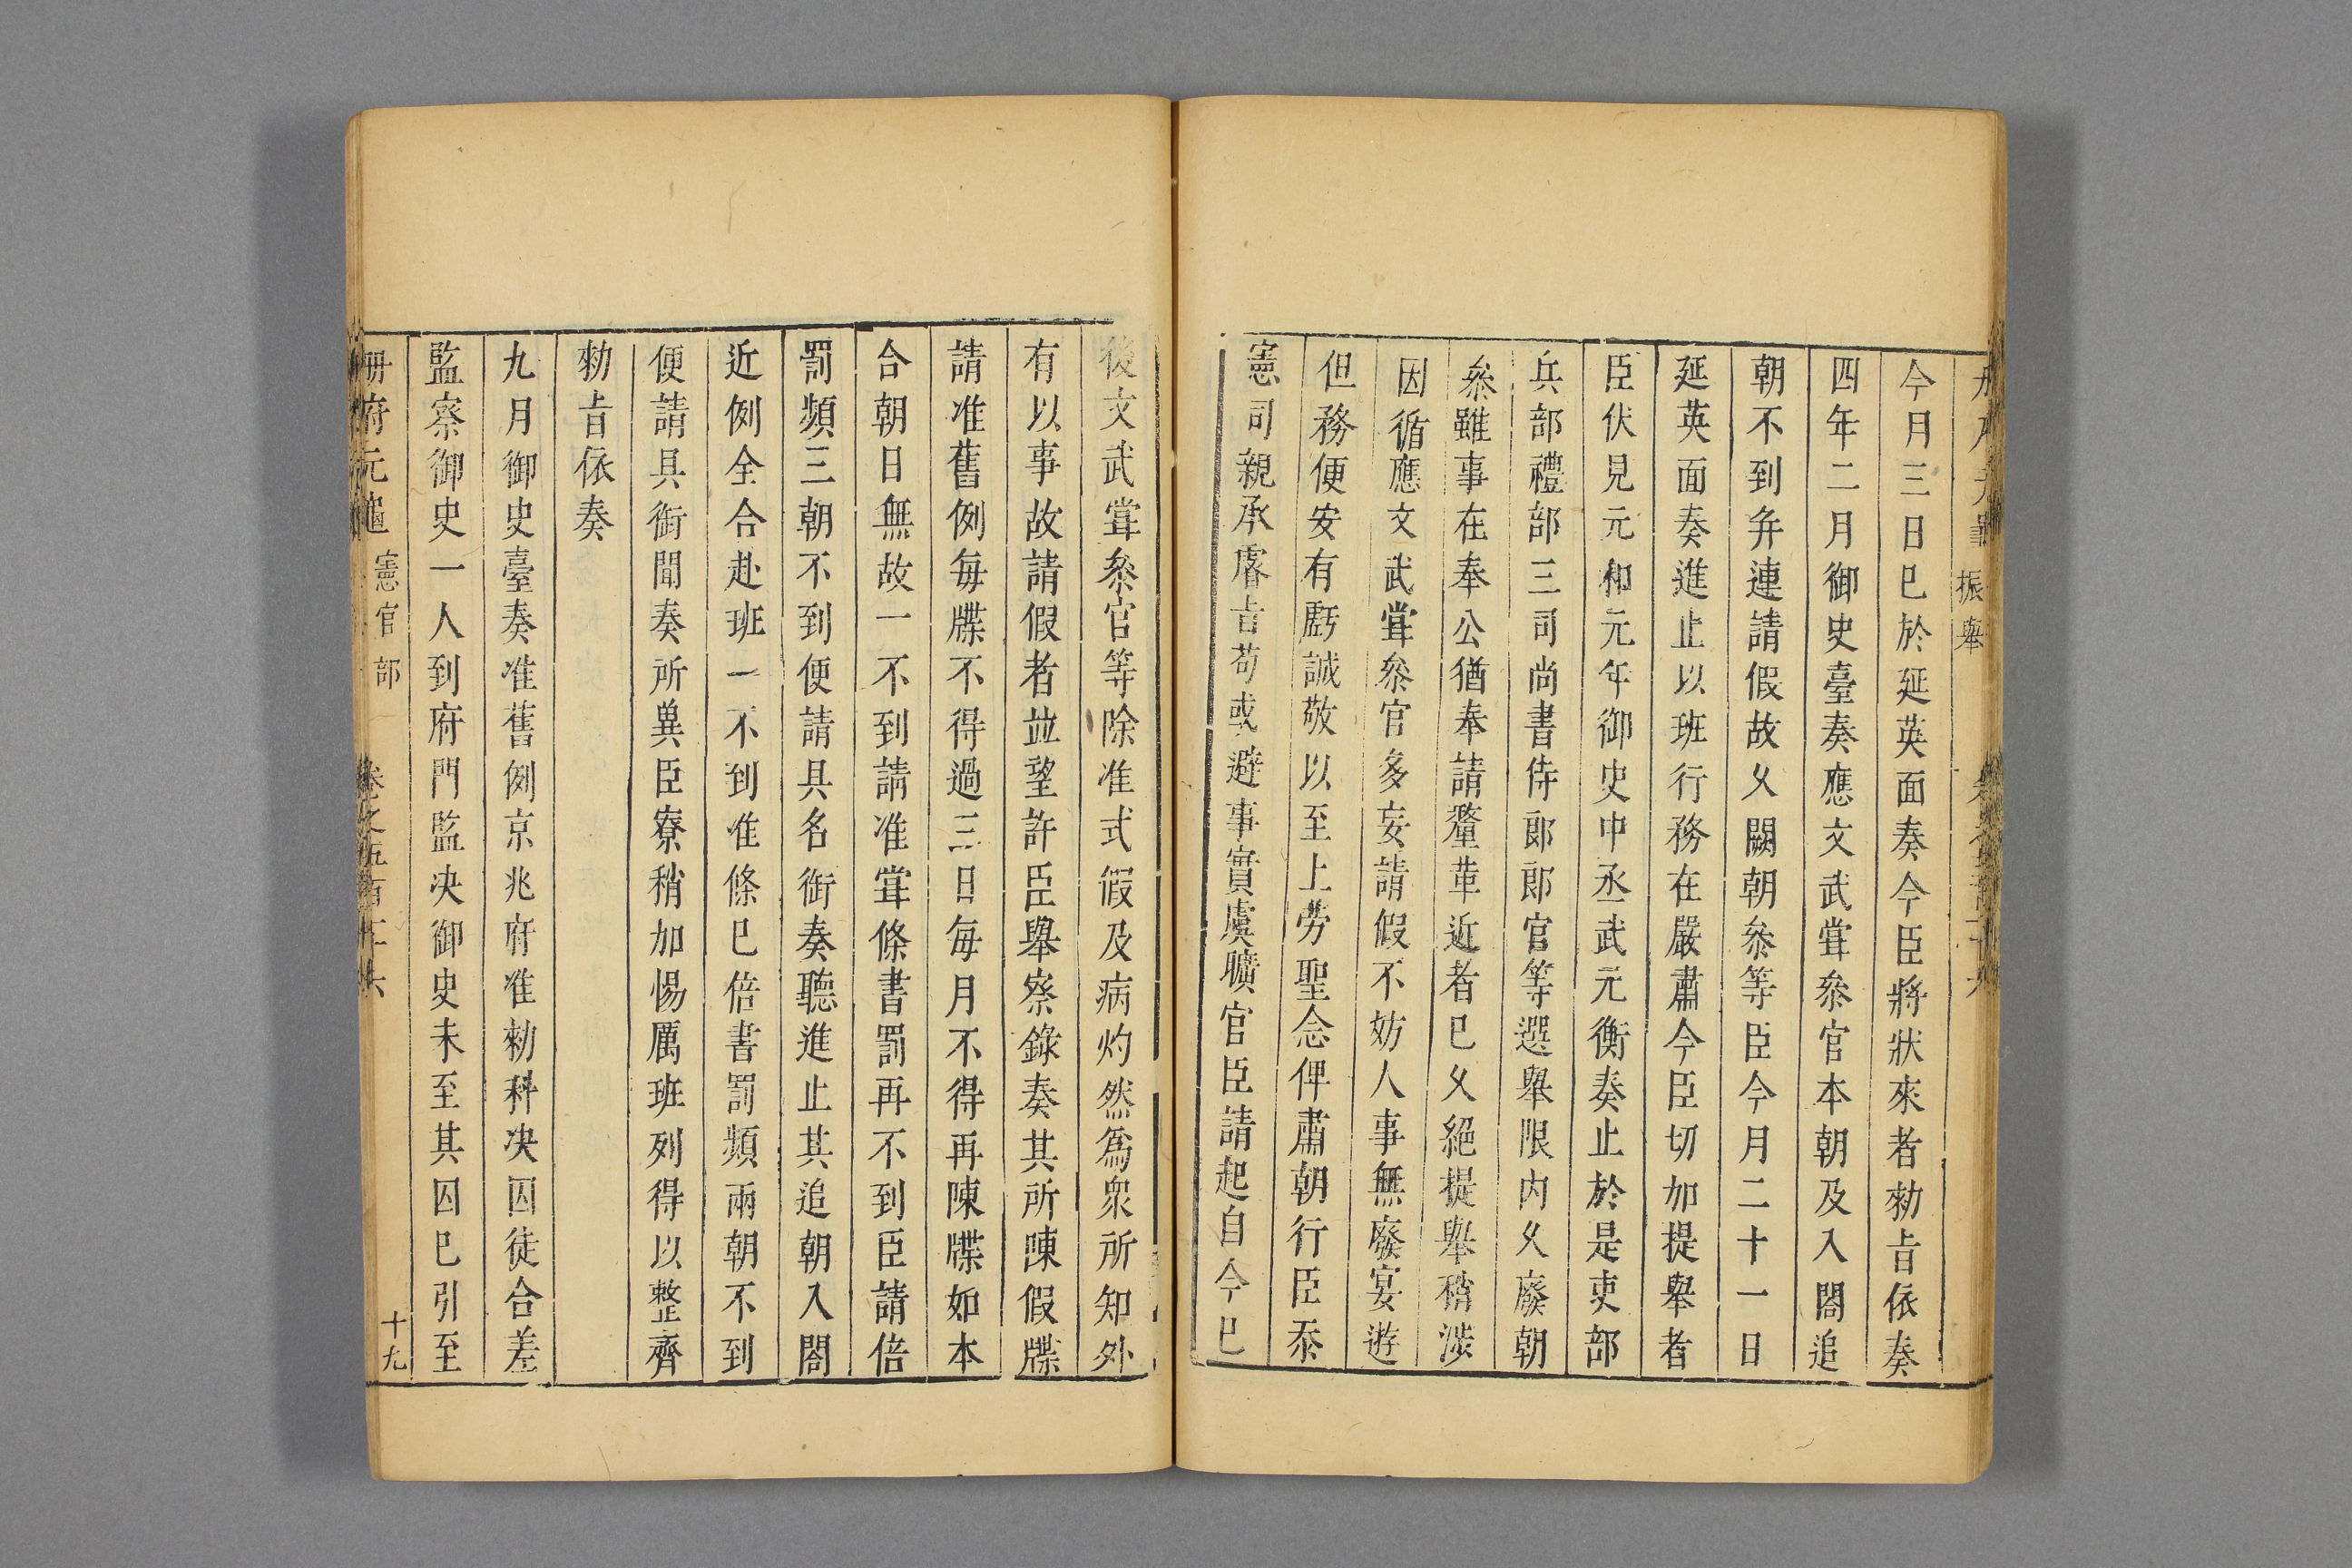 振舉
今月三日巳於延英面奏今臣將狀來者勑旨依奏
四年二月御史臺奏應文武甞叅官本朝及入閤追
朝不到并連請假故乆闕朝叅等臣今月二十一日
延英面奏進止以班行務在嚴肅今臣切加提舉者
臣伏見元和元年御史中丞武元衡奏止於是吏部
兵部禮部三司尚書侍郎郎官等選舉限内乆廢朝
叅雖事在奉公猶奉請釐革近者巳乆絕提舉稍涉
因循應文武甞叅官多妄請假不妨人事無廢宴遊
但務便安有虧誠敬以至上勞聖念俾肅朝行臣忝
憲司親承睿旨苟或避事實虞曠官臣請起自今巳
後文武甞叅官等除准式假及病灼然爲衆所知外
有以事故請假者並望許臣舉察錄奏其所陳假牒
請准舊例每牒不得過三日每月不得再陳牒如本
合朝日無故一不到請准甞條書罰再不到臣請倍
罰頻三朝不到便請具名銜奏聽進止其追朝入閤
近例全合赴班一不到准條巳倍書罰頻兩朝不到
便請具銜聞奏所兾臣寮稍加惕厲班列得以整齊
勑旨依奏
九月御史臺奏准舊例京兆府准勑科决囚徒合差
監察御史一人到府門監决御史未至其囚巳引至
册府元龜 憲官部 卷之五百十六 十九